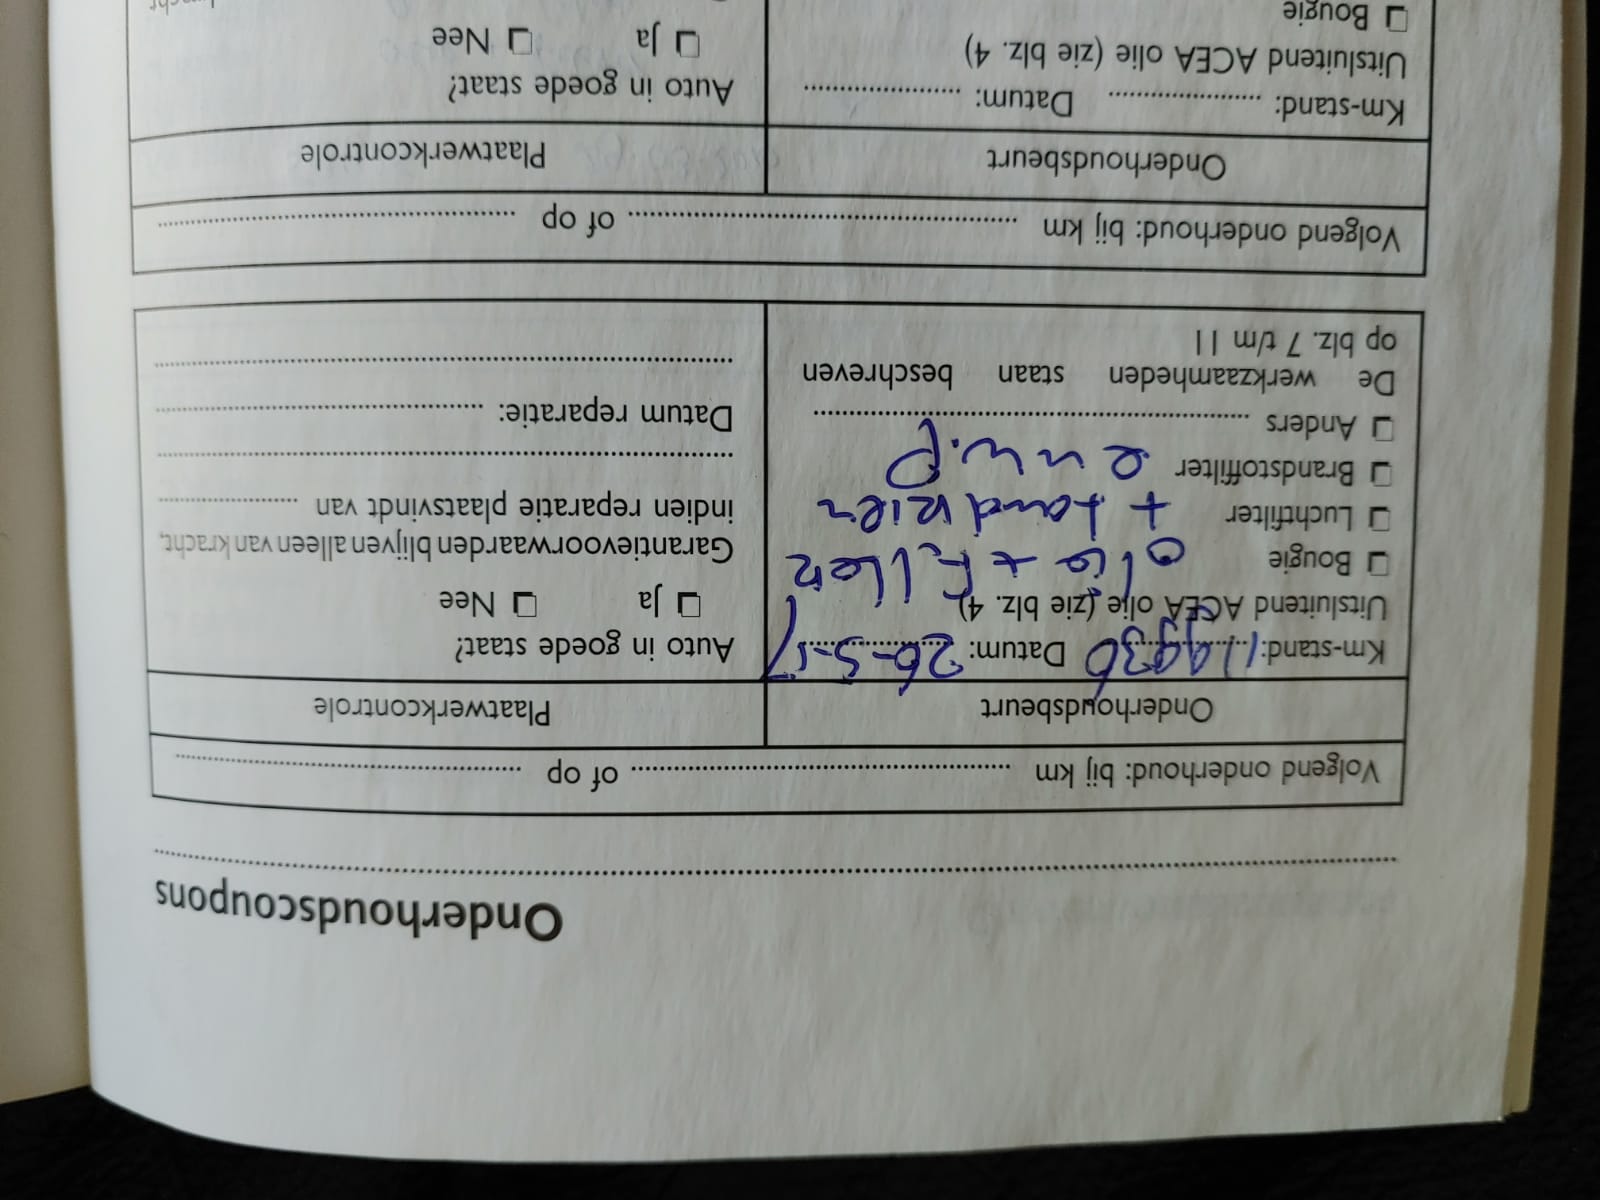 Onderhoudscoupons
Volgend onderhoud: bij km of op
Onderhoudsbeurt
Km-stand: 119936 Datum: 26-5-17
Uitsluitend ACEA olie (zie blz. 4)
❏ Bougie olie + filter
❏ Luchtfilter + tandriem
❏ Brandstoffilter en w.p
❏ Anders
De werkzaamheden staan beschreven
op blz. 7 t/m 11
Plaatwerkcontrole
Auto in goede staat?
❏ Ja ❏ Nee
Garantievoorwaarden blijven alleen van kracht,
indien reparatie plaatsvindt van
Datum reparatie:
Volgend onderhoud: bij km of op
Onderhoudsbeurt
Km-stand: Datum:
Uitsluitend ACEA olie (zie blz. 4)
❏ Bougie
Plaatwerkcontrole
Auto in goede staat?
❏ Ja ❏ Nee